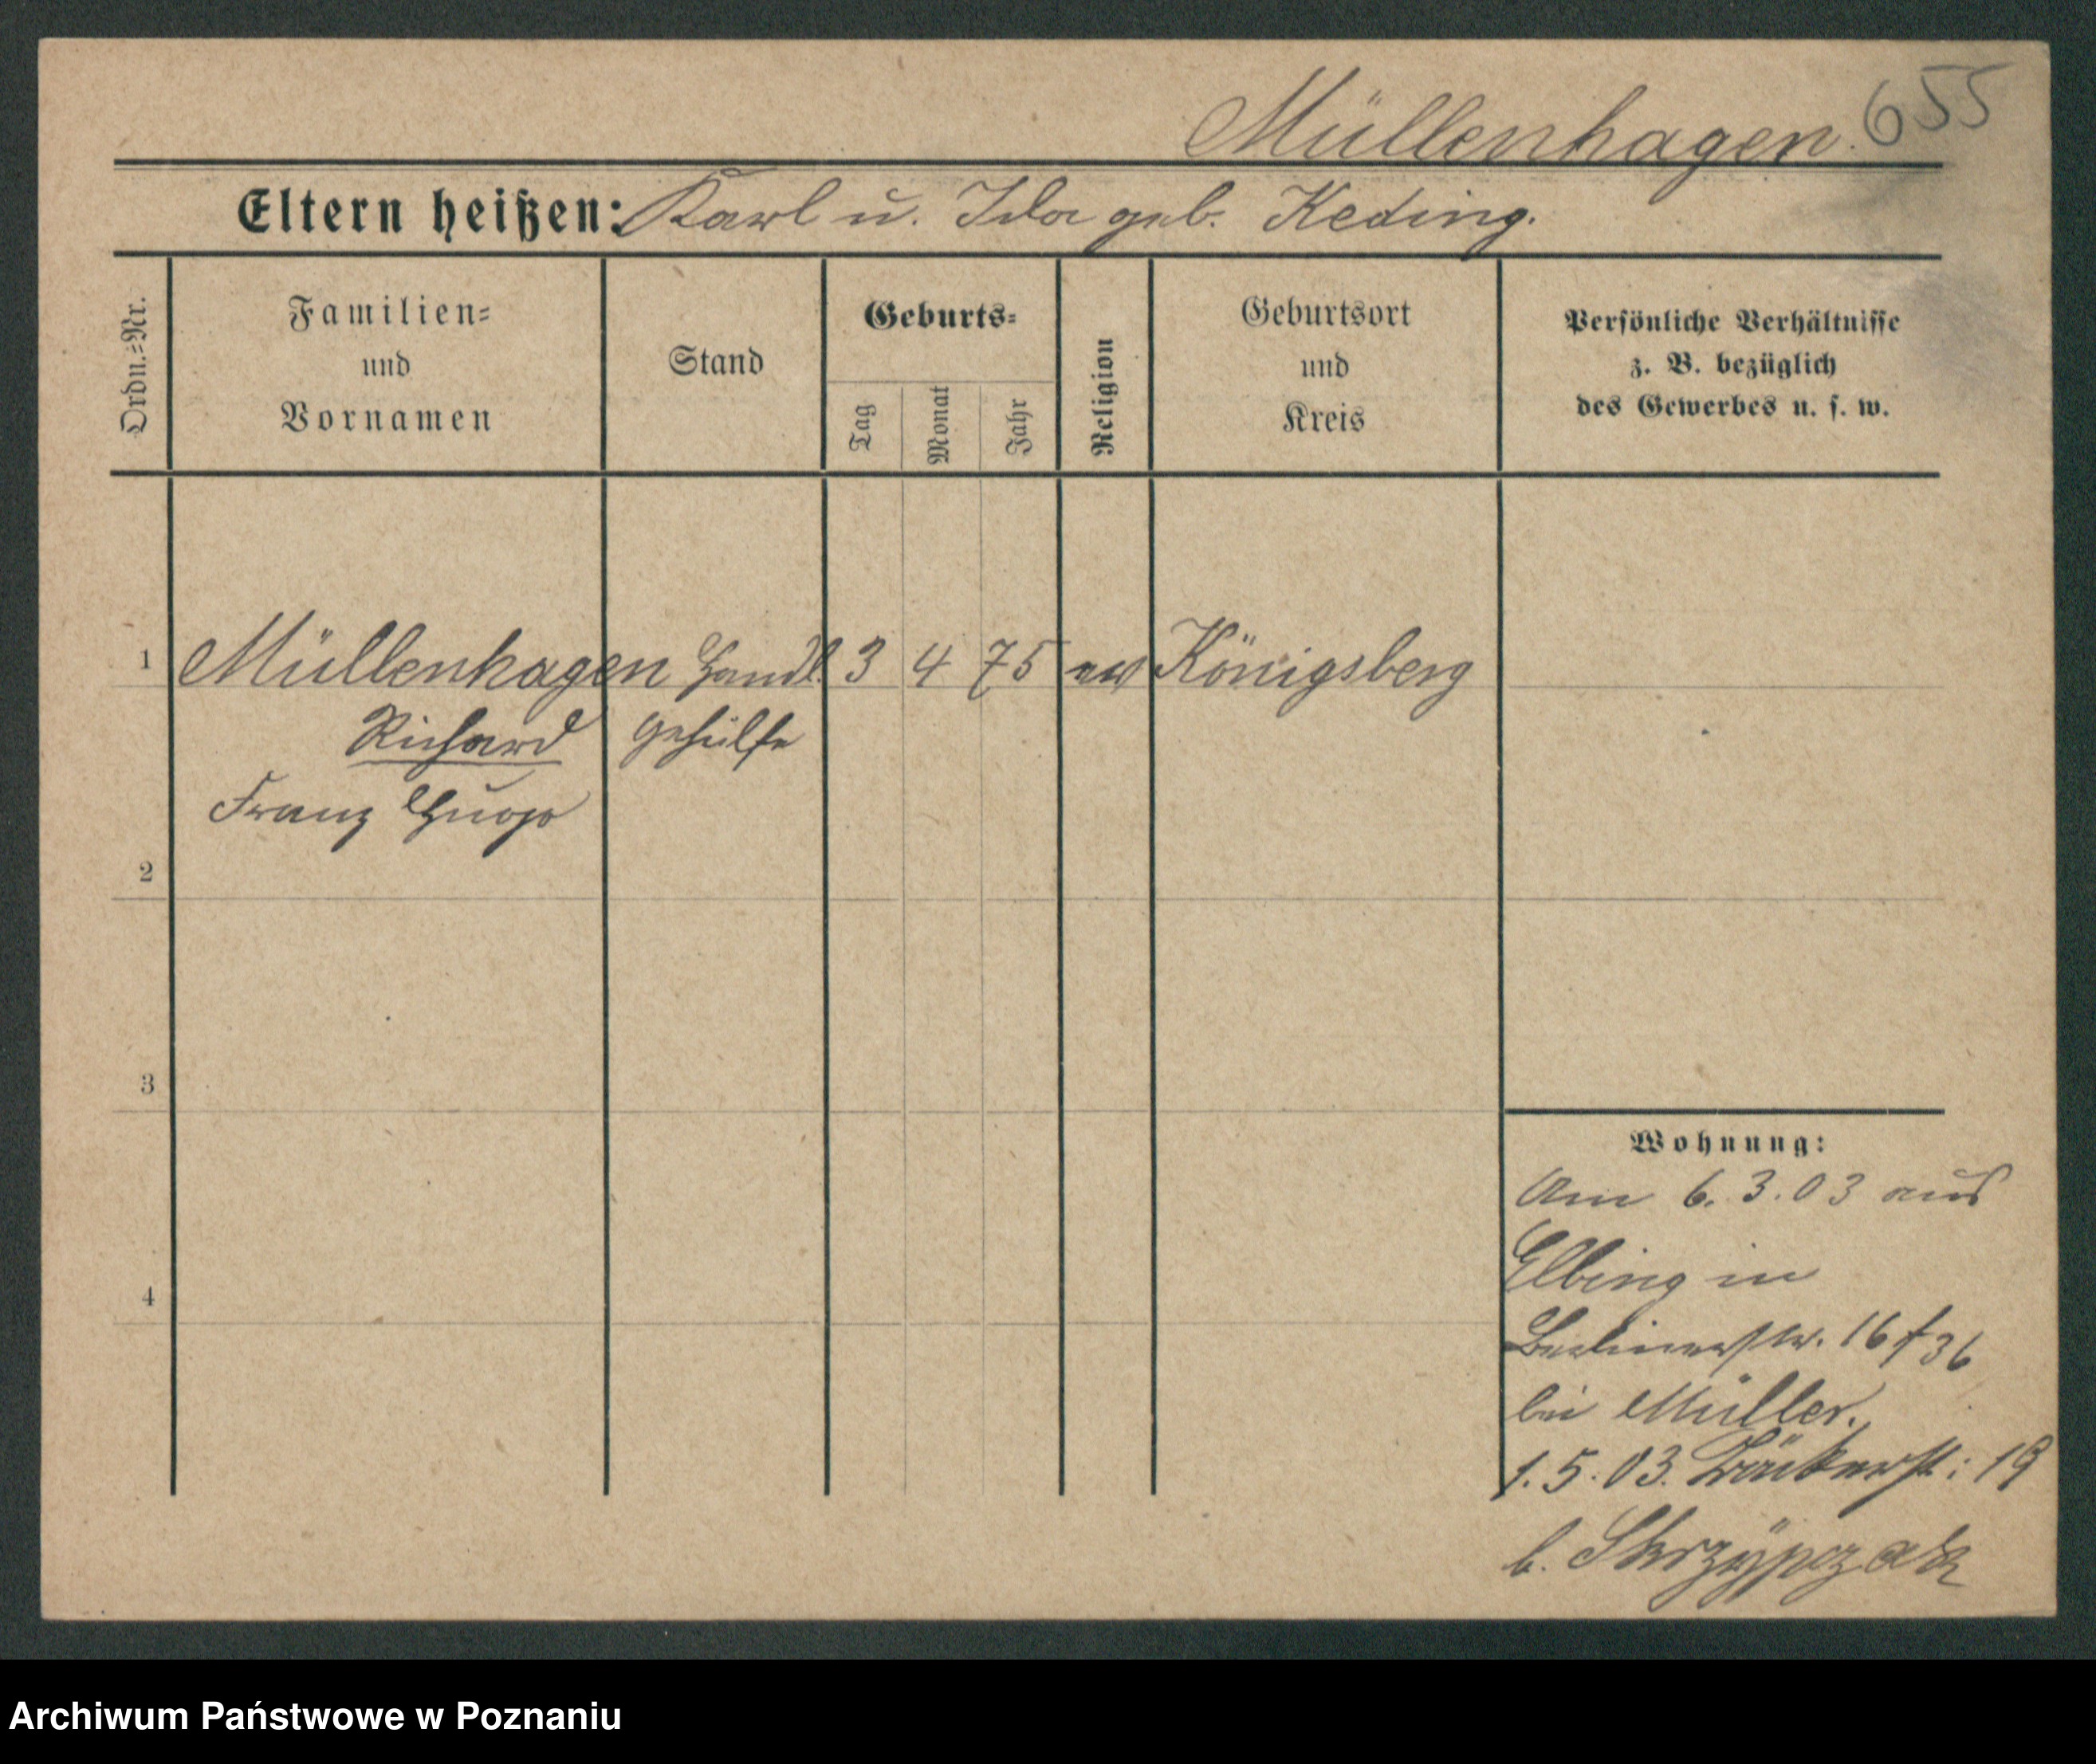 Müllenhagen. 655
Eltern heißen: Karl u. Ida geb. Keding.
Ordn.=Nr.
Familien=
und
Vornamen
Stand
Geburts=
Tag
Monat
Jahr
Religion
Geburtsort
und
Kreis
Persönliche Verhältnisse
z. B. bezüglich
des Gewerbes u. s. w.
1 Müllenhagen Handl. 3 4 75 ev Königsberg
Richard gehülfe
Franz Hugo
2
3
4
Wohnung:
Am 6.3.03 aus
Elbing in
Berlinerstr. 16 36
bei Müller.
1.5.03. Bäckerst: 19
b. Skrzypczak
Archiwum Państwowe w Poznaniu